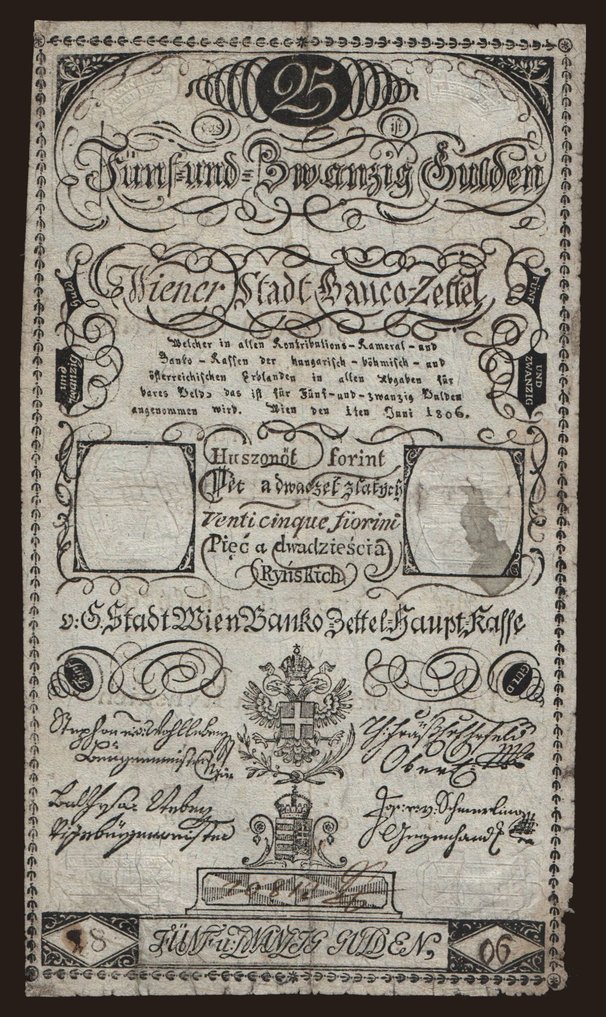 25
das ist
Fünf-und-Zwanzig Gulden
Wiener Stadt Banco-Zettel
FÜNF
UND
ZWANZIG
Welcher in allen Kontributions-Kameral-und
Banko-Kassen der hungarisch-böhmisch-und
österreichischen Erblanden in allen Abgaben für
bares Geld, das ist für Fünf-und-zwanzig Gulden
angenommen wird. Wien den 1ten Juni 1806.
Huszonöt forint
Pět a dwaczet zlatych
Venti cinque fiorini
Pięć a dwadzieścia
Ryńskich
v: G. Stadt Wien Banko Zettel-Haupt Kasse
Fünf
GULD
Stephan
Bürgermeister
Schmerling
18
FÜNF u: ZWANZIG GULDEN,
06